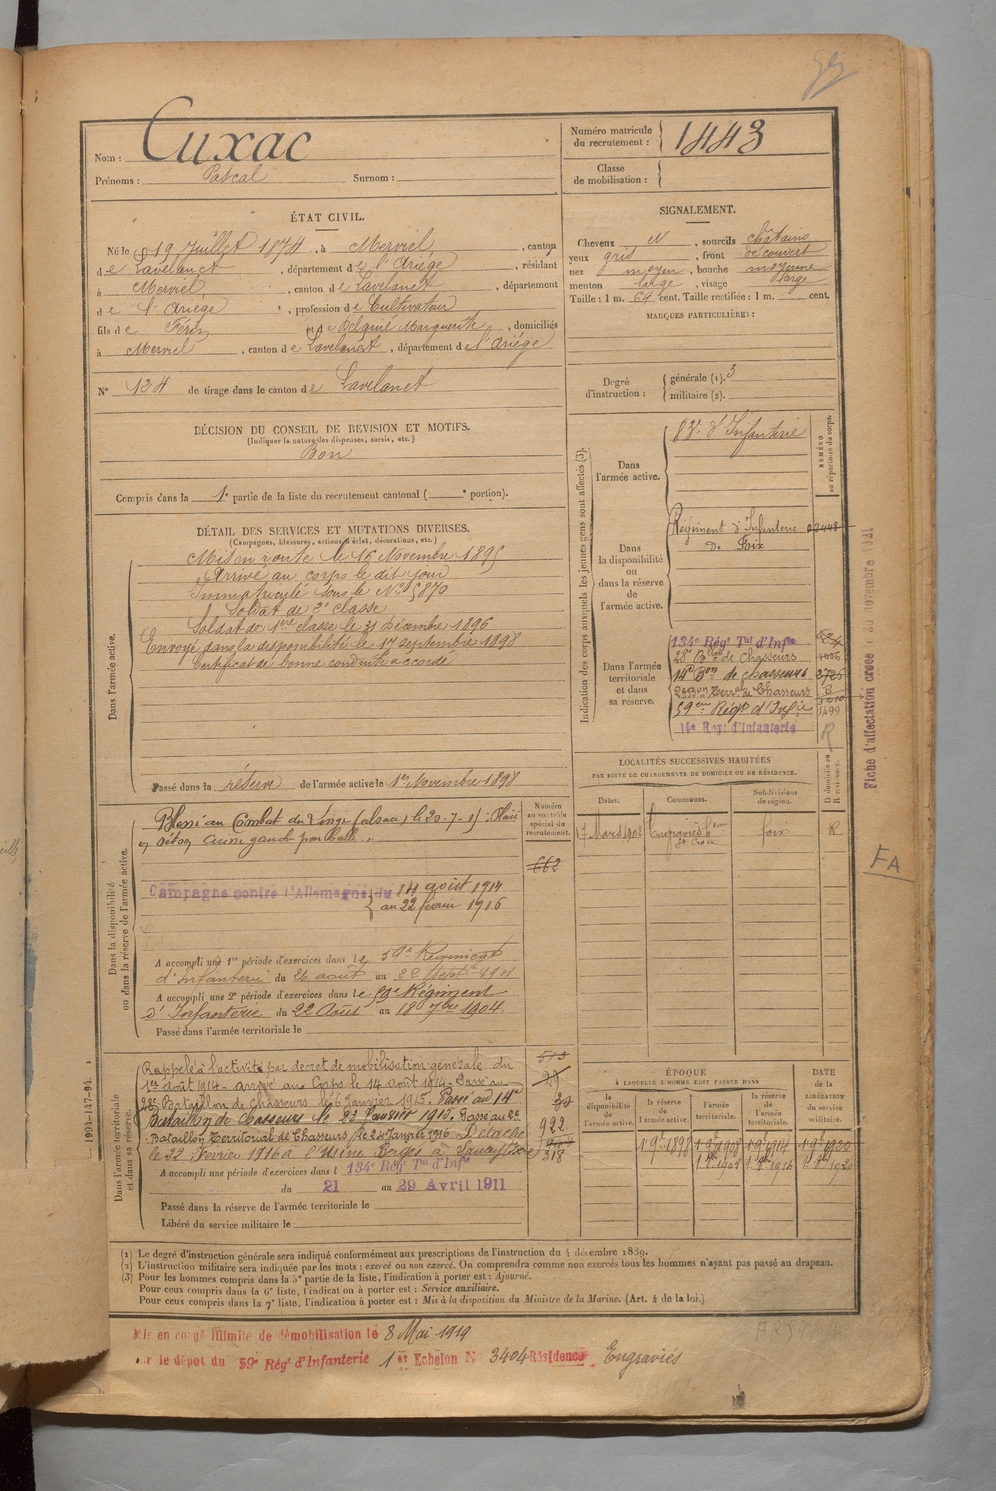 Nom : Cuxac
Prénoms : Pascal Surnom :
Numéro matricule du recrutement : 1443
Classe de mobilisation :
ÉTAT CIVIL.
Né le 19 Juillet 1874, à Merviel, canton
de Lavelanet, département de l'Ariége, résidant
à Merviel, canton de Lavelanet, département
de l'Ariége, profession de Cultivateur
fils de et de Marguerite, domiciliés
à Merviel, canton de Lavelanet, département de l'Ariége
N° 124 de tirage dans le canton de Lavelanet
DÉCISION DU CONSEIL DE REVISION ET MOTIFS.
(Indiquer la nature des dispenses, sursis, etc.)
Bon
Compris dans la 1e partie de la liste du recrutement cantonal ( e portion).
SIGNALEMENT.
Cheveux N, sourcils châtains
yeux gris, front découvert
nez moyen, bouche moyenne
menton large, visage large
Taille : 1 m. 64 cent. Taille rectifiée : 1 m. cent.
MARQUES PARTICULIÈRES :
Degré d'instruction : générale (1). 3
militaire (2).
DÉTAIL DES SERVICES ET MUTATIONS DIVERSES.
(Campagnes, blessures, actions d'éclat, décorations, etc.)
Dans l'armée active.
Mis en route le 16 Novembre 1895
Arrivé au corps le dit jour
Immatriculé sous le N° 5870
Soldat de 2e classe
Soldat de 1ère classe le 31 décembre 1896
Envoyé dans la disponibilité le 17 septembre 1898
Certificat de bonne conduite accordé
Passé dans la réserve de l'armée active le 1er Novembre 1898
Indication des corps auxquels les jeunes gens sont affectés (3).
NUMÉRO au répertoire du corps.
Dans l'armée active.
83e d'Infanterie
Dans la disponibilité ou dans la réserve de l'armée active.
Régiment d'Infanterie
de Foix
Dans l'armée territoriale et dans sa réserve.
134e Régt Tal d'Infie
28e Bon de Chasseurs
14e Bon de chasseurs
2e Bon Terral de Chasseurs
59eme Régt d'Infie 1499
14e Regt d'Infanterie
Fiche d'affectation créée
FA
LOCALITÉS SUCCESSIVES HABITÉES
PAR SUITE DE CHANGEMENTS DE DOMICILE OU DE RÉSIDENCE.
Dates. Communes. Subdivisions de région. D domicile ou R résidence.
17 Mars 1902 foix R
Dans la disponibilité ou dans la réserve de l'armée active.
Numéro au contrôle spécial du recrutement.
662
Blessé au Combat du Linge (alsace) le 20-7-15 : Plaie
cuisse gauche par balle.
Campagne contre l'Allemagne, du 14 août 1914
au 22 février 1916
A accompli une 1re période d'exercices dans le 59e Régiment
d'Infanterie du 26 août au
A accompli une 2e période d'exercices dans le 59e Régiment
d'Infanterie du 22 Août au 18 7bre 1904.
Passé dans l'armée territoriale le
Dans l'armée territoriale et dans sa réserve.
Rappelé à l'activité par décret de mobilisation générale du
1er août 1914 - arrivé au Corps le 14 août 1914 - Passé au
28e Bataillon de chasseurs le 6 Janvier 1915. Passé au 14e
Bataillon de Chasseurs le 23 Janvier 1915. Passé au 2e
Bataillon Territorial de Chasseurs le 24 Janvier 1916 Détaché
le 22 Février 1916 à l'Usine Berges à
922
318
A accompli une période d'exercices dans l 134e Régt Tal d'Infie
du 21 au 29 Avril 1911
Passé dans la réserve de l'armée territoriale le
Libéré du service militaire le
ÉPOQUE
À LAQUELLE L'HOMME DOIT PASSER DANS
la disponibilité de l'armée active. la réserve de l'armée active. l'armée territoriale. la réserve de l'armée territoriale.
DATE de la LIBÉRATION du service militaire.
1 9bre 1898 1 9bre 1908 1 9bre 1914 1 9bre 1920
(1) Le degré d'instruction générale sera indiqué conformément aux prescriptions de l'instruction du 4 décembre 1889.
(2) L'instruction militaire sera indiquée par les mots : exercé ou non exercé. On comprendra comme non exercés tous les hommes n'ayant pas passé au drapeau.
(3) Pour les hommes compris dans la 5e partie de la liste, l'indication à porter est : Ajourné.
Pour ceux compris dans la 6e liste, l'indication à porter est : Service auxiliaire.
Pour ceux compris dans la 7e liste, l'indication à porter est : Mis à la disposition du Ministre de la Marine. (Art. 4 de la loi.)
Mis en congé illimité de démobilisation le 8 Mai 1919
le dépôt du 59e Régt d'Infanterie 1er Echelon N° 3404 Résidence Engraviès